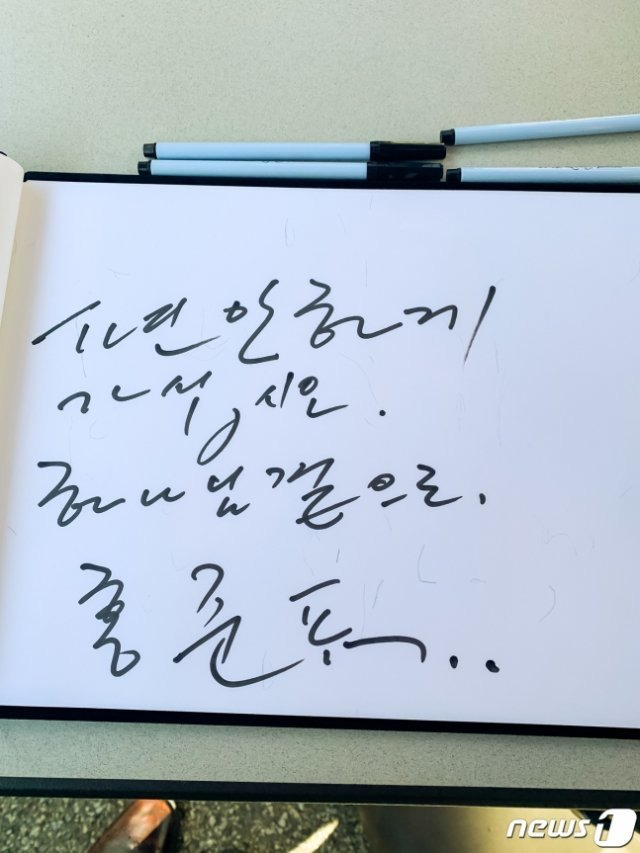 편안하게
가십시오.
하나님곁으로.
홍준표..
news1